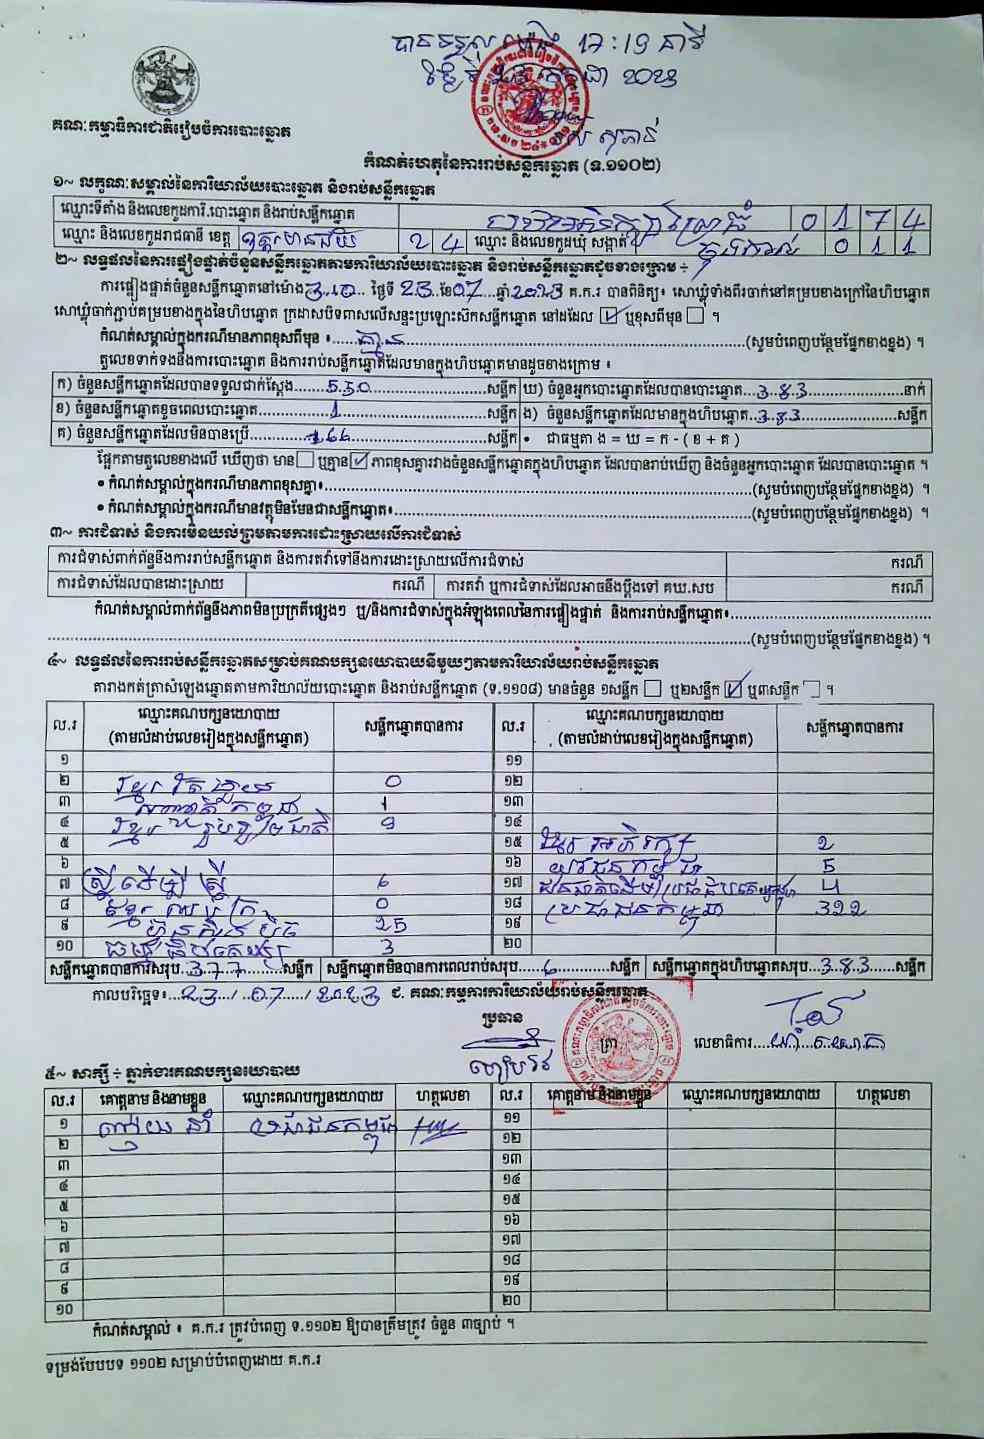 បានទទួលម៉ោង 17:19 នាទី
ថ្ងៃទី 23 កក្កដា 2023
គណៈកម្មាធិការជាតិរៀបចំការបោះឆ្នោត
កំណត់ហេតុនៃការរាប់សន្លឹកឆ្នោត (ទ.១១០២)
១~ លក្ខណៈសម្គាល់នៃការិយាល័យបោះឆ្នោត និងរាប់សន្លឹកឆ្នោត
ឈ្មោះទីតាំង និងលេខកូដការិ.បោះឆ្នោត និងរាប់សន្លឹកឆ្នោត 0 1 7 4
ឈ្មោះ និងលេខកូដរាជធានី ខេត្ត ឧត្តរមានជ័យ 2 4 ឈ្មោះ និងលេខកូដឃុំ សង្កាត់ 0 1 1
២~ លទ្ធផលនៃការផ្ទៀងផ្ទាត់ចំនួនសន្លឹកឆ្នោតតាមការិយាល័យបោះឆ្នោត និងរាប់សន្លឹកឆ្នោតដូចខាងក្រោម ÷
ការផ្ទៀងផ្ទាត់ចំនួនសន្លឹកឆ្នោតនៅម៉ោង 3:10 ថ្ងៃទី 23 ខែ 07 ឆ្នាំ 2023 គ.ក.រ បានពិនិត្យ៖ សោឃ្លុំទាំងពីរចាក់នៅគម្របខាងក្រៅនៃហិបឆ្នោត
សោឃ្លុំចាក់ភ្ជាប់គម្របខាងក្នុងនៃហិបឆ្នោត ក្រដាសបិទពាសលើសន្ទះប្រឡោះស៊កសន្លឹកឆ្នោត នៅដដែល ☑ ឬខុសពីមុន ☐ ។
កំណត់សម្គាល់ក្នុងករណីមានភាពខុសពីមុន ៖ គ្មាន (សូមបំពេញបន្ថែមផ្នែកខាងខ្នង) ។
តួលេខទាក់ទងនឹងការបោះឆ្នោត និងការរាប់សន្លឹកឆ្នោតដែលមានក្នុងហិបឆ្នោតមានដូចខាងក្រោម ៖
ក) ចំនួនសន្លឹកឆ្នោតដែលបានទទួលជាក់ស្តែង 550 សន្លឹក ឃ) ចំនួនអ្នកបោះឆ្នោតដែលបានបោះឆ្នោត 383 នាក់
ខ) ចំនួនសន្លឹកឆ្នោតខូចពេលបោះឆ្នោត 1 សន្លឹក ង) ចំនួនសន្លឹកឆ្នោតដែលមានក្នុងហិបឆ្នោត 383 សន្លឹក
គ) ចំនួនសន្លឹកឆ្នោតដែលមិនបានប្រើ 166 សន្លឹក • ជាធម្មតា ង = ឃ = ក - ( ខ + គ )
ផ្អែកតាមតួលេខខាងលើ ឃើញថា មាន ☐ ឬគ្មាន ☑ ភាពខុសគ្នារវាងចំនួនសន្លឹកឆ្នោតក្នុងហិបឆ្នោត ដែលបានរាប់ឃើញ និងចំនួនអ្នកបោះឆ្នោត ដែលបានបោះឆ្នោត ។
• កំណត់សម្គាល់ក្នុងករណីមានភាពខុសគ្នា៖ (សូមបំពេញបន្ថែមផ្នែកខាងខ្នង) ។
• កំណត់សម្គាល់ក្នុងករណីមានវត្ថុមិនមែនជាសន្លឹកឆ្នោត៖ (សូមបំពេញបន្ថែមផ្នែកខាងខ្នង) ។
៣~ ការជំទាស់ និងការមិនយល់ព្រមតាមការដោះស្រាយលើការជំទាស់
ការជំទាស់ពាក់ព័ន្ធនឹងការរាប់សន្លឹកឆ្នោត និងការតវ៉ាទៅនឹងការដោះស្រាយលើការជំទាស់ ករណី
ការជំទាស់ដែលបានដោះស្រាយ ករណី ការតវ៉ា ឬការជំទាស់ដែលអាចនឹងប្តឹងទៅ គឃ.សប ករណី
កំណត់សម្គាល់ពាក់ព័ន្ធនឹងភាពមិនប្រក្រតីផ្សេងៗ ឬ/និងការជំទាស់ក្នុងអំឡុងពេលនៃការផ្ទៀងផ្ទាត់ និងការរាប់សន្លឹកឆ្នោត៖
(សូមបំពេញបន្ថែមផ្នែកខាងខ្នង) ។
៤~ លទ្ធផលនៃការរាប់សន្លឹកឆ្នោតសម្រាប់គណបក្សនយោបាយនីមួយៗតាមការិយាល័យរាប់សន្លឹកឆ្នោត
តារាងកត់ត្រាសំឡេងឆ្នោតតាមការិយាល័យបោះឆ្នោត និងរាប់សន្លឹកឆ្នោត (ទ.១១០៨) មានចំនួន ១សន្លឹក ☐ ឬ២សន្លឹក ☑ ឬ៣សន្លឹក ☐ ។
ល.រ ឈ្មោះគណបក្សនយោបាយ (តាមលំដាប់លេខរៀងក្នុងសន្លឹកឆ្នោត) សន្លឹកឆ្នោតបានការ ល.រ ឈ្មោះគណបក្សនយោបាយ (តាមលំដាប់លេខរៀងក្នុងសន្លឹកឆ្នោត) សន្លឹកឆ្នោតបានការ
១ ១១
២ 0 ១២
៣ 1 ១៣
៤ ខ្មែររួបរួមជាតិ 9 ១៤
៥ ១៥ ខ្មែរអភិរក្ស 2
៦ ១៦ យុវជនកម្ពុជា 5
៧ ស្ត្រីដើម្បីស្ត្រី 6 ១៧ 4
៨ 0 ១៨ ប្រជាជនកម្ពុជា 322
៩ ហ៊្វុនស៊ិនប៉ិច 25 ១៩
១០ 3 ២០
សន្លឹកឆ្នោតបានការសរុប 377 សន្លឹក សន្លឹកឆ្នោតមិនបានការពេលរាប់សរុប 6 សន្លឹក សន្លឹកឆ្នោតក្នុងហិបឆ្នោតសរុប 383 សន្លឹក
កាលបរិច្ឆេទ៖ 23 / 07 / 2023 ជ. គណៈកម្មការការិយាល័យរាប់សន្លឹកឆ្នោត
ប្រធាន ត្រា លេខាធិការ
៥~ សាក្សី ÷ ភ្នាក់ងារគណបក្សនយោបាយ
ល.រ គោត្តនាម និងនាមខ្លួន ឈ្មោះគណបក្សនយោបាយ ហត្ថលេខា ល.រ គោត្តនាម និងនាមខ្លួន ឈ្មោះគណបក្សនយោបាយ ហត្ថលេខា
១ ប្រជាជនកម្ពុជា ១១
២ ១២
៣ ១៣
៤ ១៤
៥ ១៥
៦ ១៦
៧ ១៧
៨ ១៨
៩ ១៩
១០ ២០
កំណត់សម្គាល់ ៖ គ.ក.រ ត្រូវបំពេញ ទ.១១០២ ឱ្យបានត្រឹមត្រូវ ចំនួន ៣ច្បាប់ ។
ទម្រង់បែបបទ ១១០២ សម្រាប់បំពេញដោយ គ.ក.រ